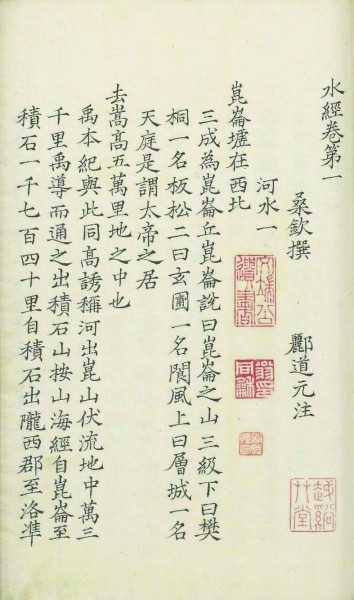 水經卷第一
桑欽撰 酈道元注
河水一
崑崙墟在西北
三成為崑崙丘崑崙說曰崑崙之山三級下曰樊
桐一名板松二曰玄圃一名閬風上曰層城一名
天庭是謂太帝之居
去嵩高五萬里地之中也
禹本紀與此同高誘稱河出崑山伏流地中萬三
千里禹導而通之出積石山按山海經自崑崙至
積石一千七百四十里自積石出隴西郡至洛準